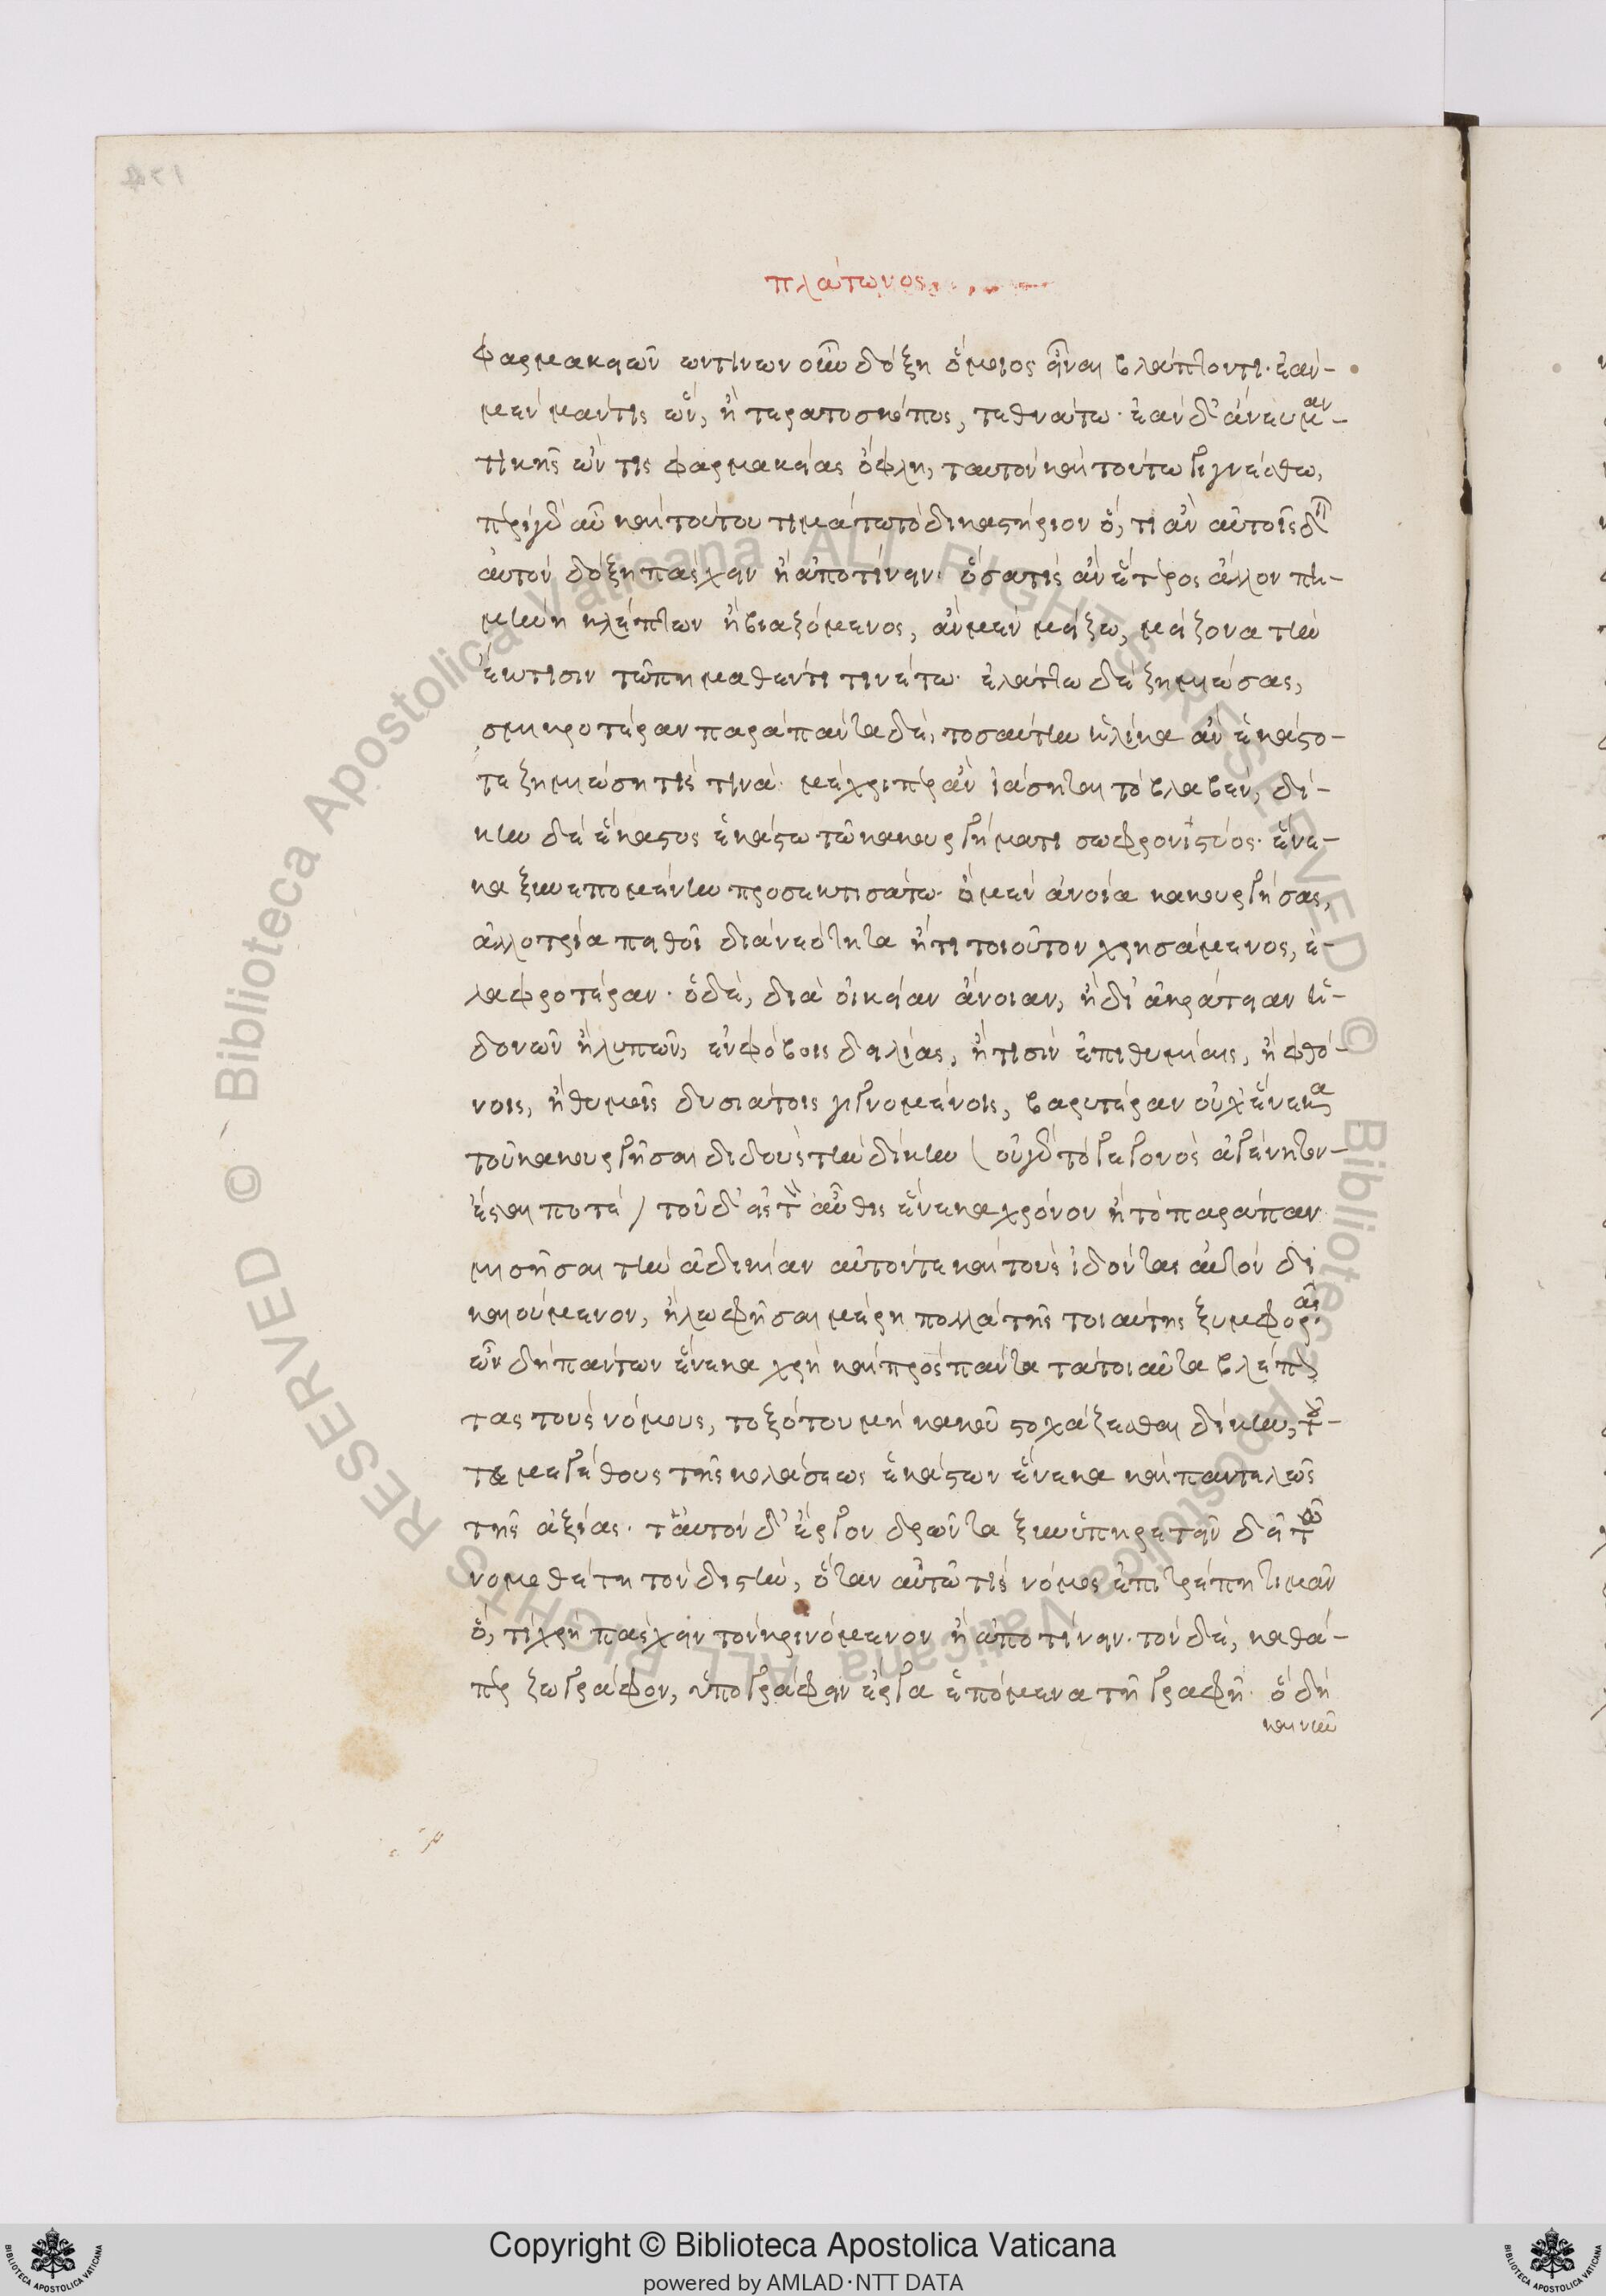 πλάτωνος
φαρμακειῶν ὡντίνων οὖν δόξη ὅμοιος εἶναι βλάπτοντι· ἐὰν-
μὲν μάντις ὢν, ἢ τερατοσκόπος, τεθνάτω· ἐὰν δ' ἄνευ μαν-
τικῆς ὤν τις φαρμακείας ὄφλη, ταυτὸν καὶ τούτω γιγνέσθω,
πέρι γὰρ αὖ καὶ τούτου τιμάτω τὸ δικαστήριον ὅ, τι ἂν αὐτοῖς δεῖν
αὐτὸν δόξη πάσχειν ἢ ἀποτίνειν· ὅσα τις ἂν ἕτερος ἄλλον πη-
μήνη κλέπτων ἢ βιαζόμενος, ἂν μὲν μείζω, μείζονα τὴν
ἔκτισιν τῶ πημαθέντι τινέτω· ἐλάττω δὲ ζημιώσας,
σμικροτέραν παρὰ πάντα δὲ, τοσαύτην ἡλίκα ἂν ἑκάστο-
τε ζημιώση τίς τινα· μέχριπερ ἂν ἰάσηται τὸ βλαβέν, δί-
κην δὲ ἕκαστος ἑκάστω τῶ κακουργήματι σωφρονιστύος· ἕνε-
κα ξυνεπομένην προσεκτισάτω· ὁ μὲν ἀνοία κακουργήσας,
ἀλλοτρία πειθοῖ διὰ νεότητα ἤ τι τοιοῦτον χρησάμενος, ἐ-
λαφροτέραν· ὁ δὲ, διὰ οἰκείαν ἄνοιαν, ἢ δι' ἀκράτειαν ἡ-
δονῶν ἢ λυπῶν, ἐν φόβοις δειλίας, ἤ τισιν ἐπιθυμίαις, ἢ φθό-
νοις, ἢ θυμοῖς δυσιάτοις γιγνομένοις, βαρυτέραν οὐχ ἕνεκα
τοῦ κακουργῆσαι διδοὺς τὴν δίκην (οὐ γὰρ τὸ γεγονὸς ἀγένητον-
ἔσται ποτέ) τοῦ δ' εἰς τὸν αὖθις ἕνεκα χρόνον ἢ τὸ παράπαν
μισῆσαι τὴν ἀδικίαν αὐτόν τε καὶ τοὺς ἰδόντας αὐτὸν δι
καιούμενον, ἢ λωφῆσαι μέρη πολλὰ τῆς τοιαύτης ξυμφορᾶς·
ὧν δὴ πάντων ἕνεκα χρὴ καὶ πρὸς πάντα τὰ τοιαῦτα βλέπον
τας τοὺς νόμους, τοξότου μὴ κακοῦ στοχάζεσθαι δίκην, τοῦ-
τε μεγέθους τῆς κολάσεως ἑκάστων ἕνεκα καὶ παντελῶς
τῆς ἀξίας· ταὐτὸν δ' ἔργον δρῶντα ξυνυπηρετεῖν δεῖ τῶ
νομοθέτη τὸν δικαστὴν, ὅταν αὐτῶ τίς νόμος ἐπιτρέπη τιμᾶν
ὅ, τι χρὴ πάσχειν τὸν κρινόμενον ἢ ἀποτίνειν· τὸν δὲ, καθά-
περ ζωγράφον, ὑπογράφειν ἔργα ἑπόμενα τῆ γραφῆ· ὃ δὴ
καὶ νῦν